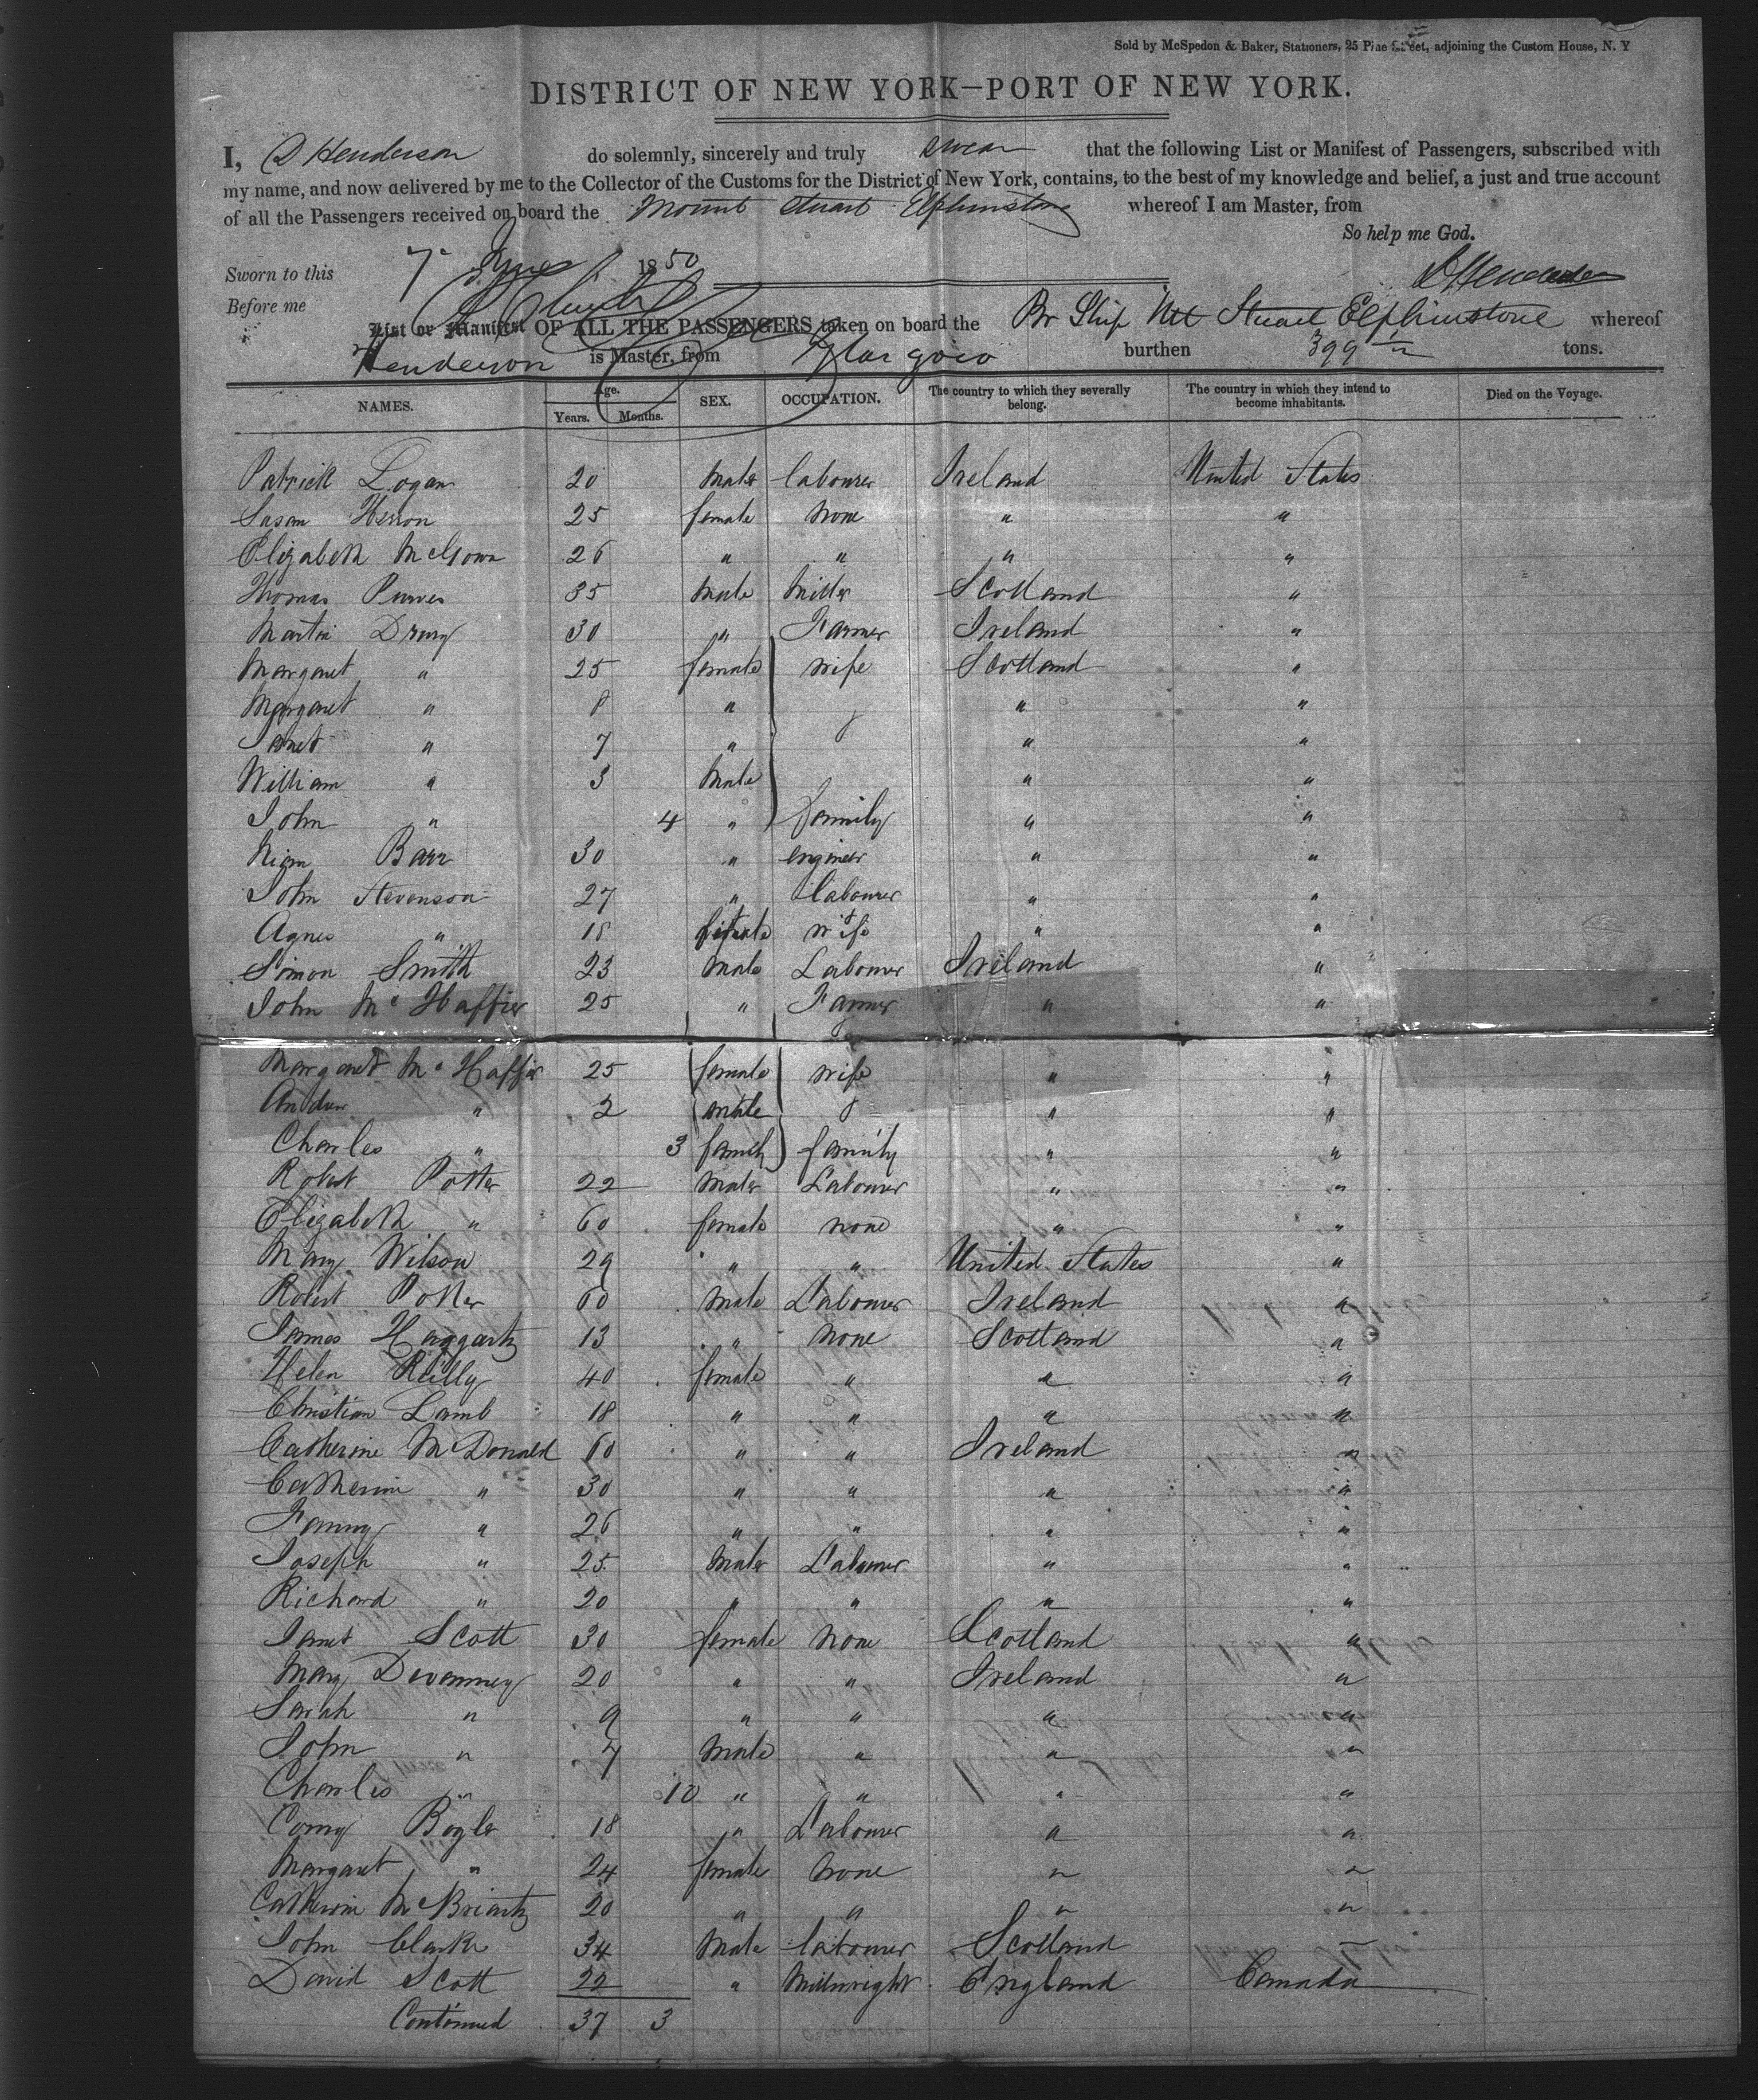 Sold by McSpedon & Baker, Stationers, 25 Pine Street, adjoining the Custom House, N. Y
DISTRICT OF NEW YORK—PORT OF NEW YORK.
I, D Henderson do solemnly, sincerely and truly swear that the following List or Manifest of Passengers, subscribed with
my name, and now delivered by me to the Collector of the Customs for the District of New York, contains, to the best of my knowledge and belief, a just and true account
of all the Passengers received on board the Mount Stuart Elphinstone whereof I am Master, from
So help me God.
Sworn to this 7 1850 D Henderson
Before me
List or Manifest OF ALL THE PASSENGERS taken on board the Br Ship Mt Stuart Elphinstone whereof
Henderson is Master, from Glasgow burthen 399 tons.
NAMES. Age. Years. Months. SEX. OCCUPATION. The country to which they severally belong. The country in which they intend to become inhabitants. Died on the Voyage.
Patrick Logan 20 Male labourer Ireland United States
Susan Herron 25 female None " "
Elizabeth McGown 26 " " " "
Thomas Purves 35 Male Miller Scotland "
Martin Drury 30 " Farmer Ireland "
Margaret " 25 female wife Scotland "
Margaret " 8 " & " "
Janet " 7 " " "
William " 3 Male " "
John " 4 " family " "
Barr 30 " engineer " "
John Stevenson 27 " labourer " "
Agnes " 18 female wife " "
Simon Smith 23 Male Labourer Ireland "
John Mc Haffie 25 " Farmer " "
Margaret Mc Haffie 25 female wife " "
Andrew " 2 male & " "
Charles " 3 family " "
Robert Potter 22 Male Labourer " "
Elizabeth " 60 female none " "
Mary Wilson 29 " " United States "
Robert Potter 60 Male Labourer Ireland "
James Haggarty 13 " None Scotland "
Helen Reilly 40 female " " "
Christian Lamb 18 " " " "
Catherine McDonald 60 " " Ireland "
Catherine " 30 " " " "
Fanny " 26 " " " "
Joseph " 25 Male Labourer " "
Richard " 20 " " " "
Janet Scott 30 female None Scotland "
Mary Devanney 20 " " Ireland "
Sarah " 9 " " " "
John " 7 Male " " "
Charles " 10 " " " "
Boyle 18 " Labourer " "
Margaret " 24 female None " "
Catherine McBriarty 20 " " " "
John Clark 34 Male labourer Scotland
David Scott 22 " Millwright England Canada
Continued 37 3